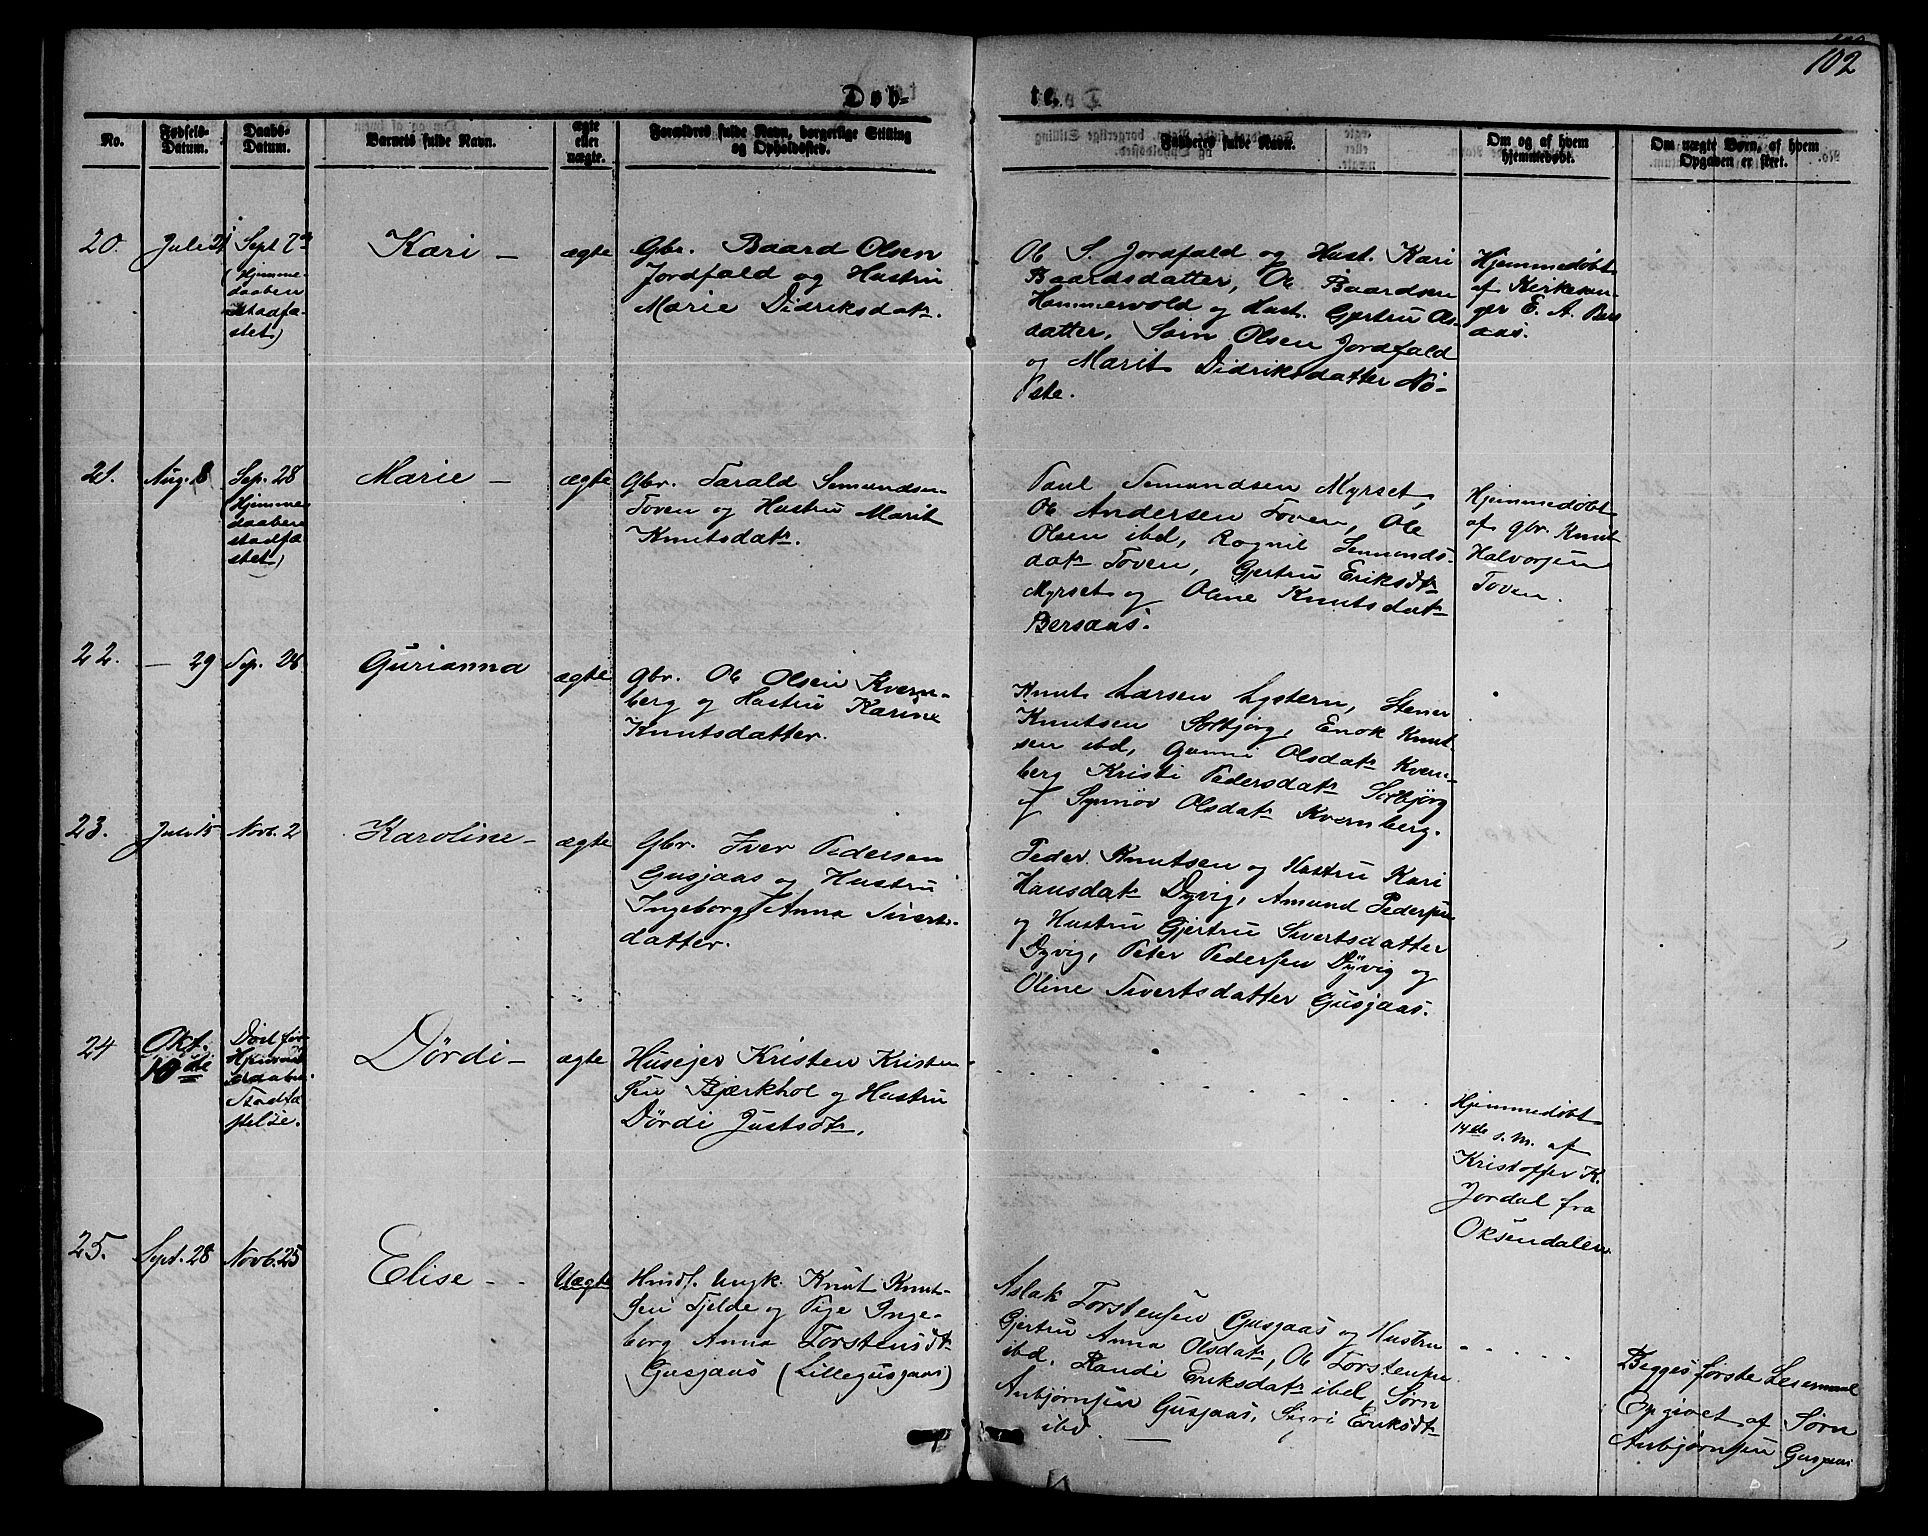 102
Døb-
te.
No.
Fødsels-
Datum.
Daabs-
Datum.
Barnets fulde Navn.
ægte
eller
uægte.
Forældres fulde Navn, borgerlige Stilling
og Opholdssted.
Fadderes fulde Navn.
Om og af hvem
hjemmedøbt.
Om uægte Børn, af hvem
Opgaven er skeet.
20.
Juli 21
Sept 7de
(Hjemme-
daaben
stadfæ-
stet)
Kari -
ægte
Gbr. Baard Olsen
Jordfald og Hustru
Marie Didriksdatr.
Ole S. Jordfald og Hust. Kari
Baardsdatter, Ole Baardsen
Hammervold og Hust. Gjertru Ols-
datter, Sørn Olsen Jordfald
og Marit Didriksdatter Nø-
ste.
Hjemmedøbt
af Kirkesan-
ger E. A. Bers
aas.
21.
Aug. 8
Sep. 28
(Hjemme
daaben
stadfæ
stet)
Marie -
ægte
Gbr. Tarald Semundsen
Toven og Hustru Marit
Knutsdatr.
Paul Semundsen Myrset,
Ole Andersen Toven, Ole
Olsen ibd, Rognil Semunds-
datr Toven, Gjertru Eriksdtr
Myrset og Oline Knutsdatr
Bersaas.
Hjemmedøbt
af gbr. Knut
Halvorsen
Toven.
22.
- 29
Sep. 28
Gurianna
ægte
Gbr. Ole Olsen Kvern-
berg og Hustru Karine
Knutsdatter.
Knut Larsen Lystern, Stener
Knutsen Storbjørg, Enok Knut
sen ibd, Gunni Olsdatr Kvern-
berg Kristi Pedersdatr Storbjørg
og Synnøv Olsdatr Kvernberg.
23.
Juli 15
Novb. 2
Karoline -
ægte
Gbr. Iver Pedersen
Gusjaas og Hustru
Ingeborg Anna Siverts-
datter.
Peder Knutsen og Hustru Kari
Hansdatr Dyvig, Amund Pedersen
og Hustru Gjertru Sivertsdatter
Dyvig, Peter Pedersen Dyvig og
Oline Sivertsdatter Gusjaas.
24
Okt.
10de
Død før
Hjemme
daabens
Stadfæ
stelse.
Dördi -
ægte
Husejer Kristen Kristen-
sen Bjærkhol og Hustru
Dördi Justsdtr.
Hjemmedøbt
14de s. M. af
Kristoffer K.
Jordal fra
Oksendalen
25.
Sept. 28
Novb. 25
Elise - -
Uægte
Hmdf. Ungk. Knut Knut-
sen Fjelde og Pige Inge-
borg Anna Torstensdtr
Gusjaas (Lillegusjaas)
Aslak Torstensen Gusjaas og Hustru
Gjertru Anna Olsdatr, Ole Torstensen
ibd. Randi Eriksdatr ibd, Sørn
Anbjørnsen Gusjaas, Sigri Eriksdtr
ibd.
Begges første Leiermaal
Opgivet af Sørn
Anbjørnsen Gusjaas